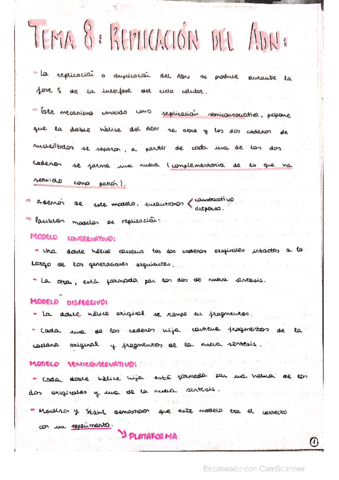 TEMA 8: REPLICACIÓN DEL ADN:
- La replicación o duplicación del ADN se produce durante la
fase S de la interfase del ciclo celular.
- Este mecanismo conocido como replicación semiconservativa, propone
que la doble hélice del ADN se abre y las dos cadenas de
nucleótidos se separan, a partir de cada una de las dos
cadenas se forma una nueva (complementaria de la que ha
servido como patrón).
Además de este modelo, encontramos conservativo
dispersivo.
- Posibles modelos de replicación:
MODELO CONSERVATIVO:
- Una doble hélice conserva las dos cadenas originales intactas a lo
largo de las generaciones siguientes.
- La otra, está formada por las dos de nueva síntesis.
MODELO DISPERSIVO:
- La doble hélice original se rompe en fragmentos.
- Cada una de las cadenas hija contiene fragmentos de la
cadena original y fragmentos de la nueva síntesis.
MODELO SEMICONSERVATIVO:
- Cada doble hélice hija está formada por una hebra de las
dos originales y una de la nueva síntesis.
- Meselson y Stahl demostraron que este modelo era el correcto
con un experimento.
PLATAFORMA
1
Escaneado con CamScanner